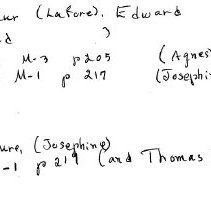 ur (Lafore), Edward
d )
M-3 p 205 (Agnes
M-1 p 217 (Josephi
ure, (Josephine)
-1 p 219 (and Thomas